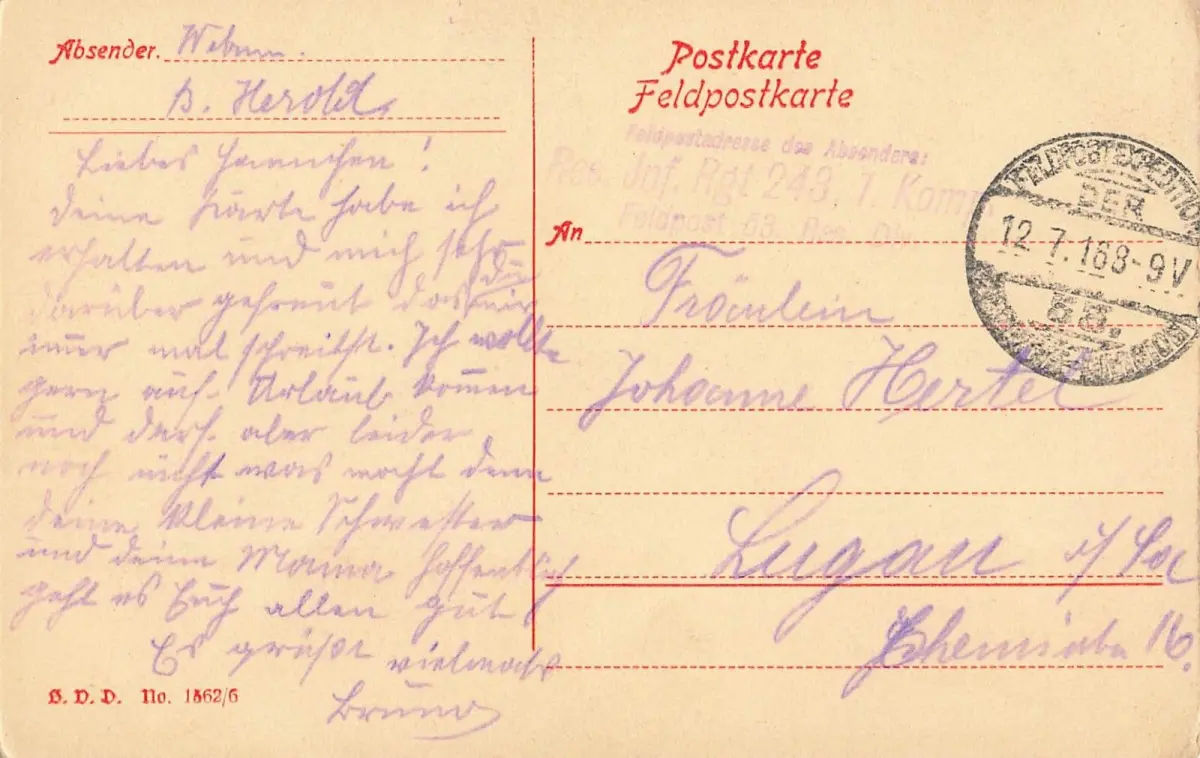 Absender. Wehrm.
B. Herold
Liebes Hannchen!
deine Karte habe ich
erhalten und mich sehr
darüber gefreut das du mir
imer mal schreibst. Ich wollte
gern auf Urlaub komen
und darf aber leider
noch nicht was macht denn
deine kleine Schwester
und deine Mama hoffentlich
geht es Euch allen gut
Es grüßt vielmals
Bruno
B. D. D. No. 1562/6
Postkarte
Feldpostkarte
Feldpostadresse des Absenders:
Res. Inf. Rgt 243. 1. Komp.
Feldpost 53. Res. Div.
An
Fräulein
Johanne Hertel
Lugau i/Sa
FELDPOSTEXPEDITION
DER
12.7.16 8-9V
53.
RESERVE-DIVISION